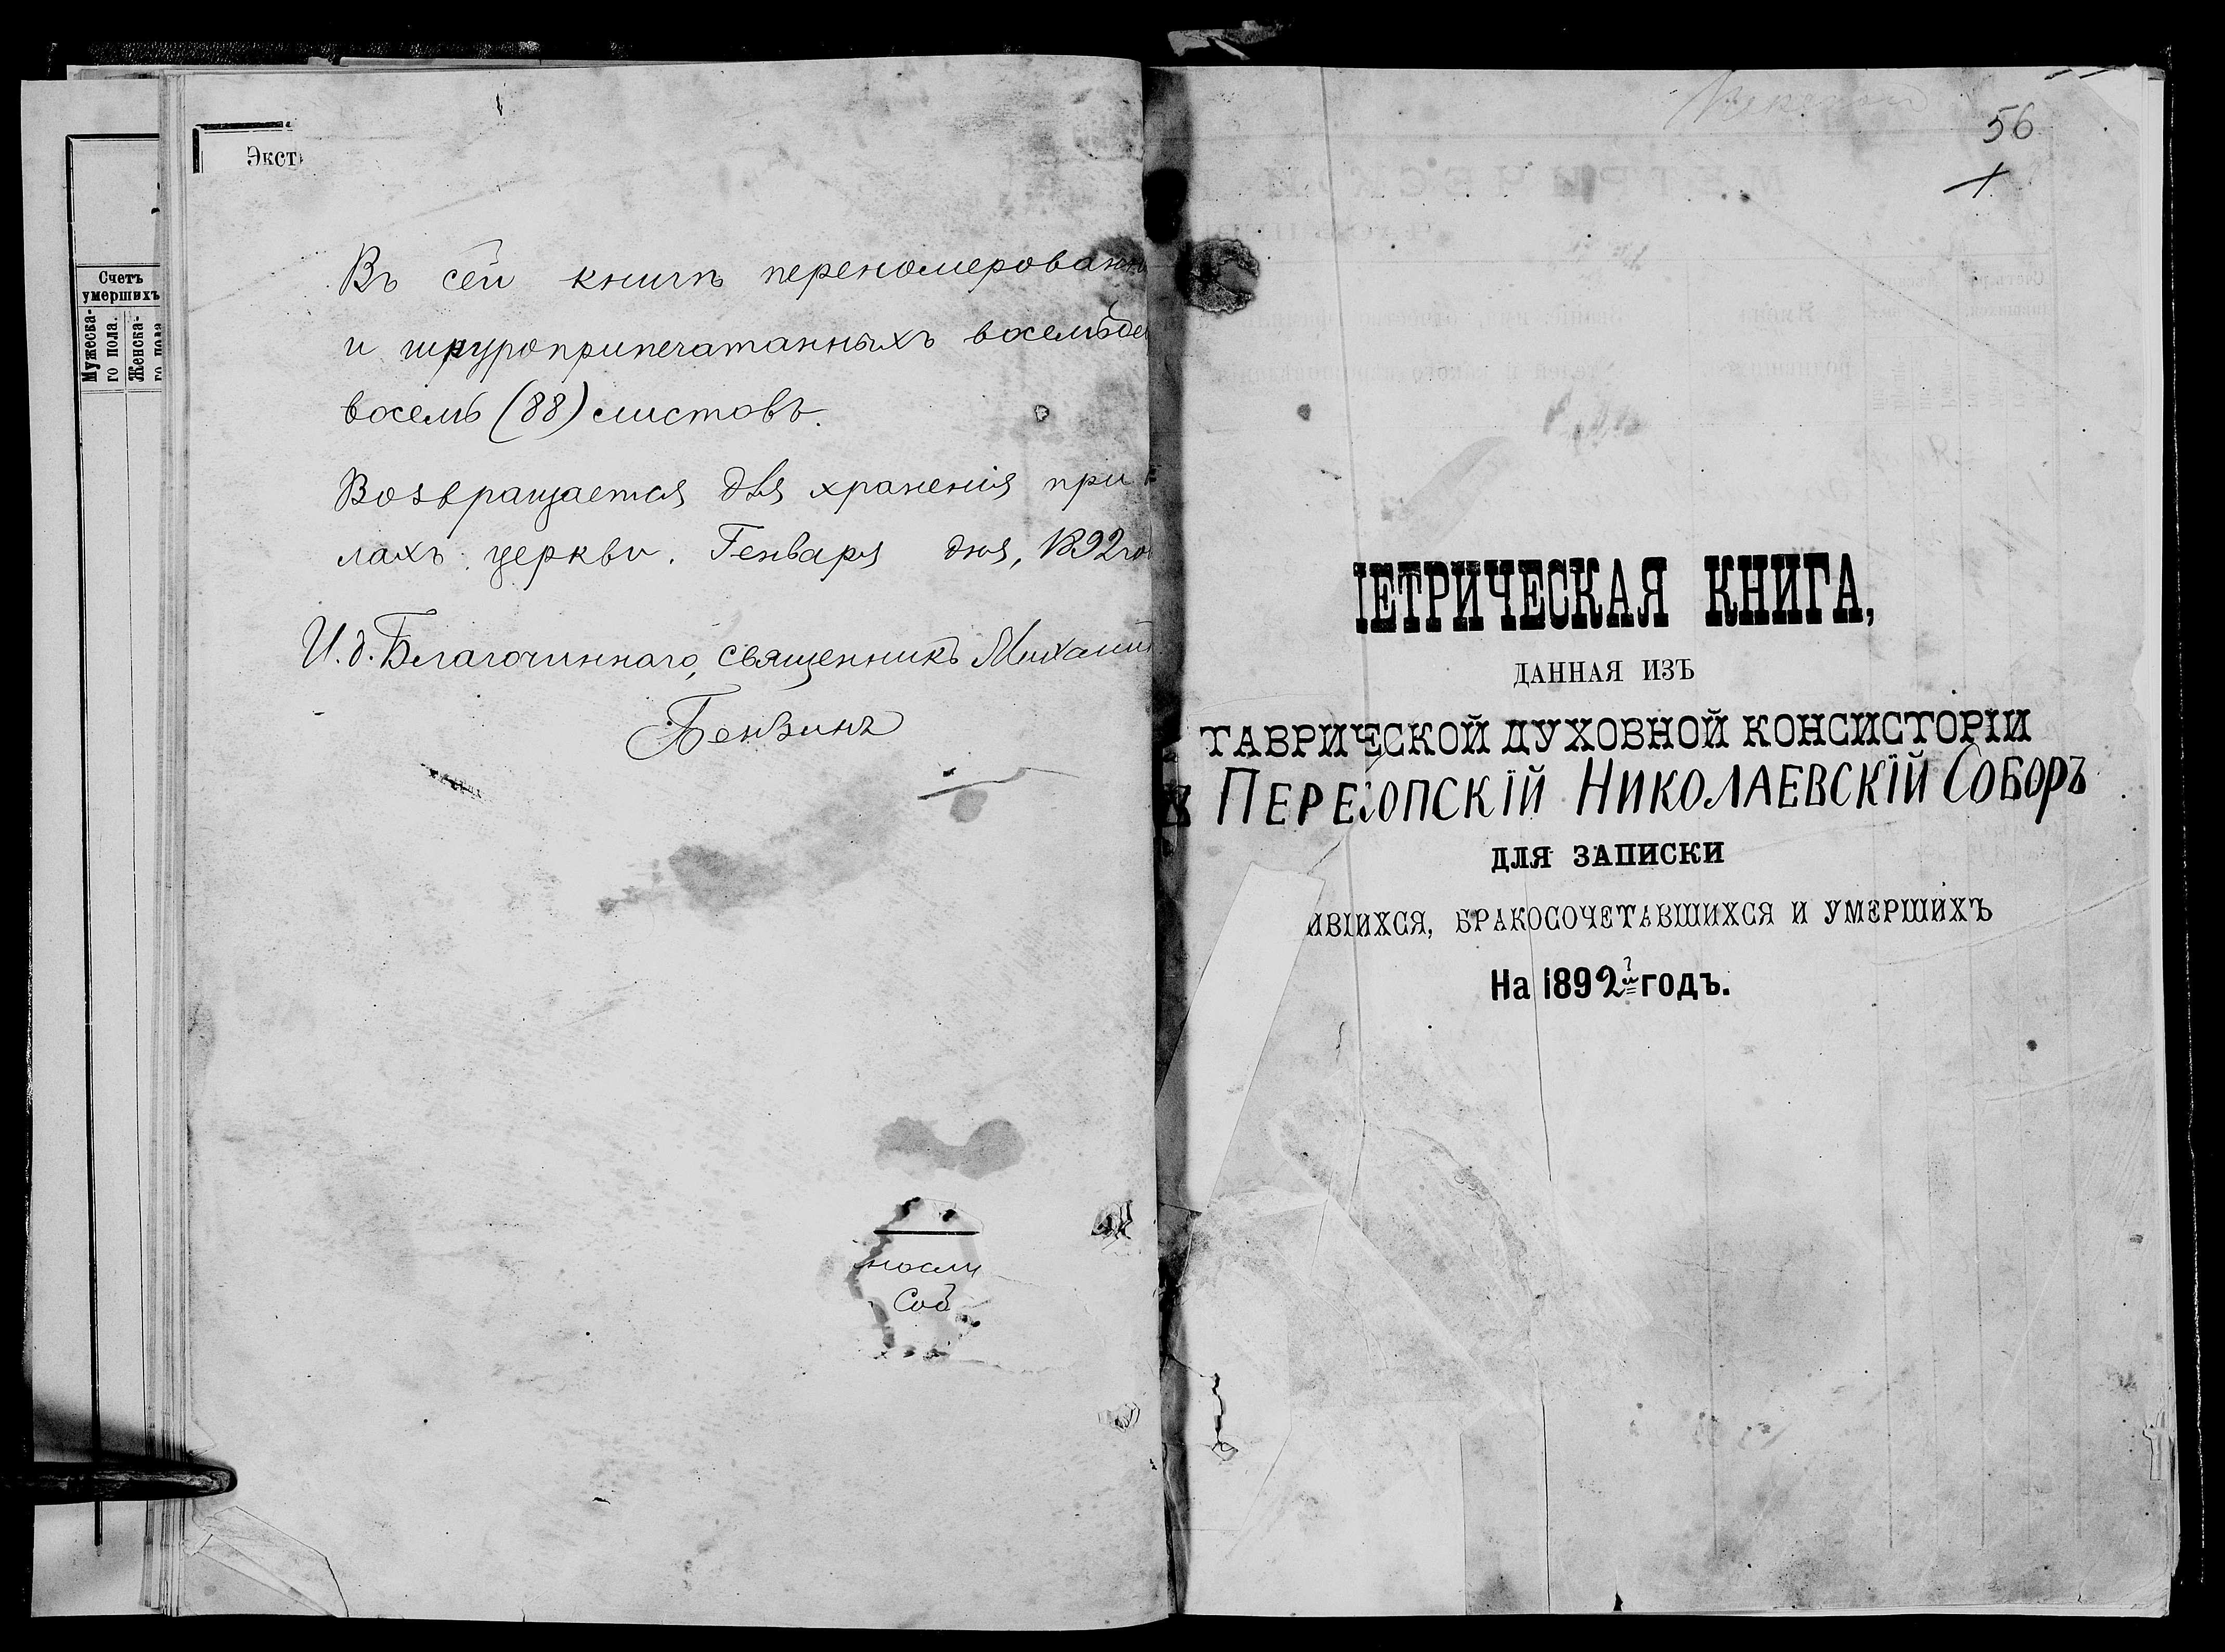 Счетъ
умершихъ
Мужеска-
го пола.
Женска-
го пола
Экст
Въ сей книгѣ переномерованны
и шнуроприпечатанныхъ восемьде
восемь (88) листовъ.
Возвращается для храненія при
лахъ церкви. Генваря дня, 1892 го
И. д. Благочиннаго, священникъ Михаил
Бензинъ
Соб
56
ЕТРИЧЕСКАЯ КНИГА,
ДАННАЯ ИЗЪ
ТАВРИЧЕСКОЙ ДУХОВНОЙ КОНСИСТОРІИ
ПЕРЕКОПСКІЙ НИКОЛАЕВСКІЙ СОБОРЪ
ДЛЯ ЗАПИСКИ
ИВШИХСЯ, БРАКОСОЧЕТАВШИХСЯ И УМЕРШИХЪ
На 1892й годъ.